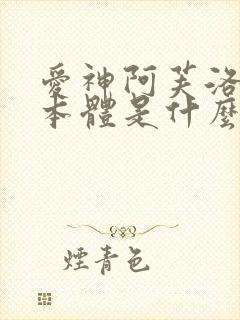 愛神阿芙洛
本體是什麼
煙青色